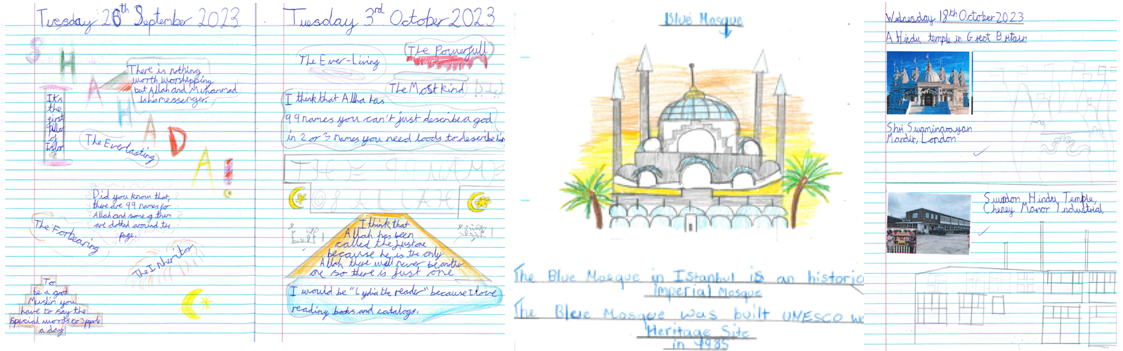 Tuesday 26th September 2023
SHAHADA!
There is nothing
worth worshipping
but Allah and Muhammad
is his messenger.
It's
the
first
pillar
of
Islam
The Everlasting
Did you know that,
there are 99 names for
Allah and some of them
are dotted around the
page.
The Forbearing
The Inheritor
To
be a good
Muslim you
have to say the
special words
a day
Tuesday 3rd October 2023
The Ever-Living
The Powerfull
The Most kind
I think that Allha has
99 names you can't just describe a god
in 2 or 3 names you need loads to describe
THE 99 NAME
I think that
Allah has been
called the
because he is the only
Allah there will never be
one so there is just one
I would be "Lydia the reader" because I love
reading books and
Blue Mosque
The Blue Mosque in Istanbul is an historic
Imperial Mosque
The Blue Mosque was built UNESCO
Heritage Site
in 1985
Wednesday 18th October 2023
A Hindu temple in Great Britain
Shri Swaminarayan
Mandir, London
Swindon Hindu Temple,
Cheney Manor Industrial